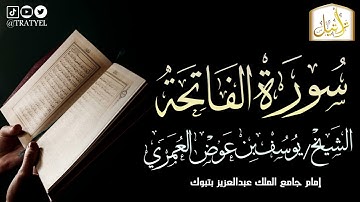 @TRATYEL
تراتيل
سورة الفاتحة
الشيخ/ يوسف بن عوض العمري
إمام جامع الملك عبدالعزيز بتبوك